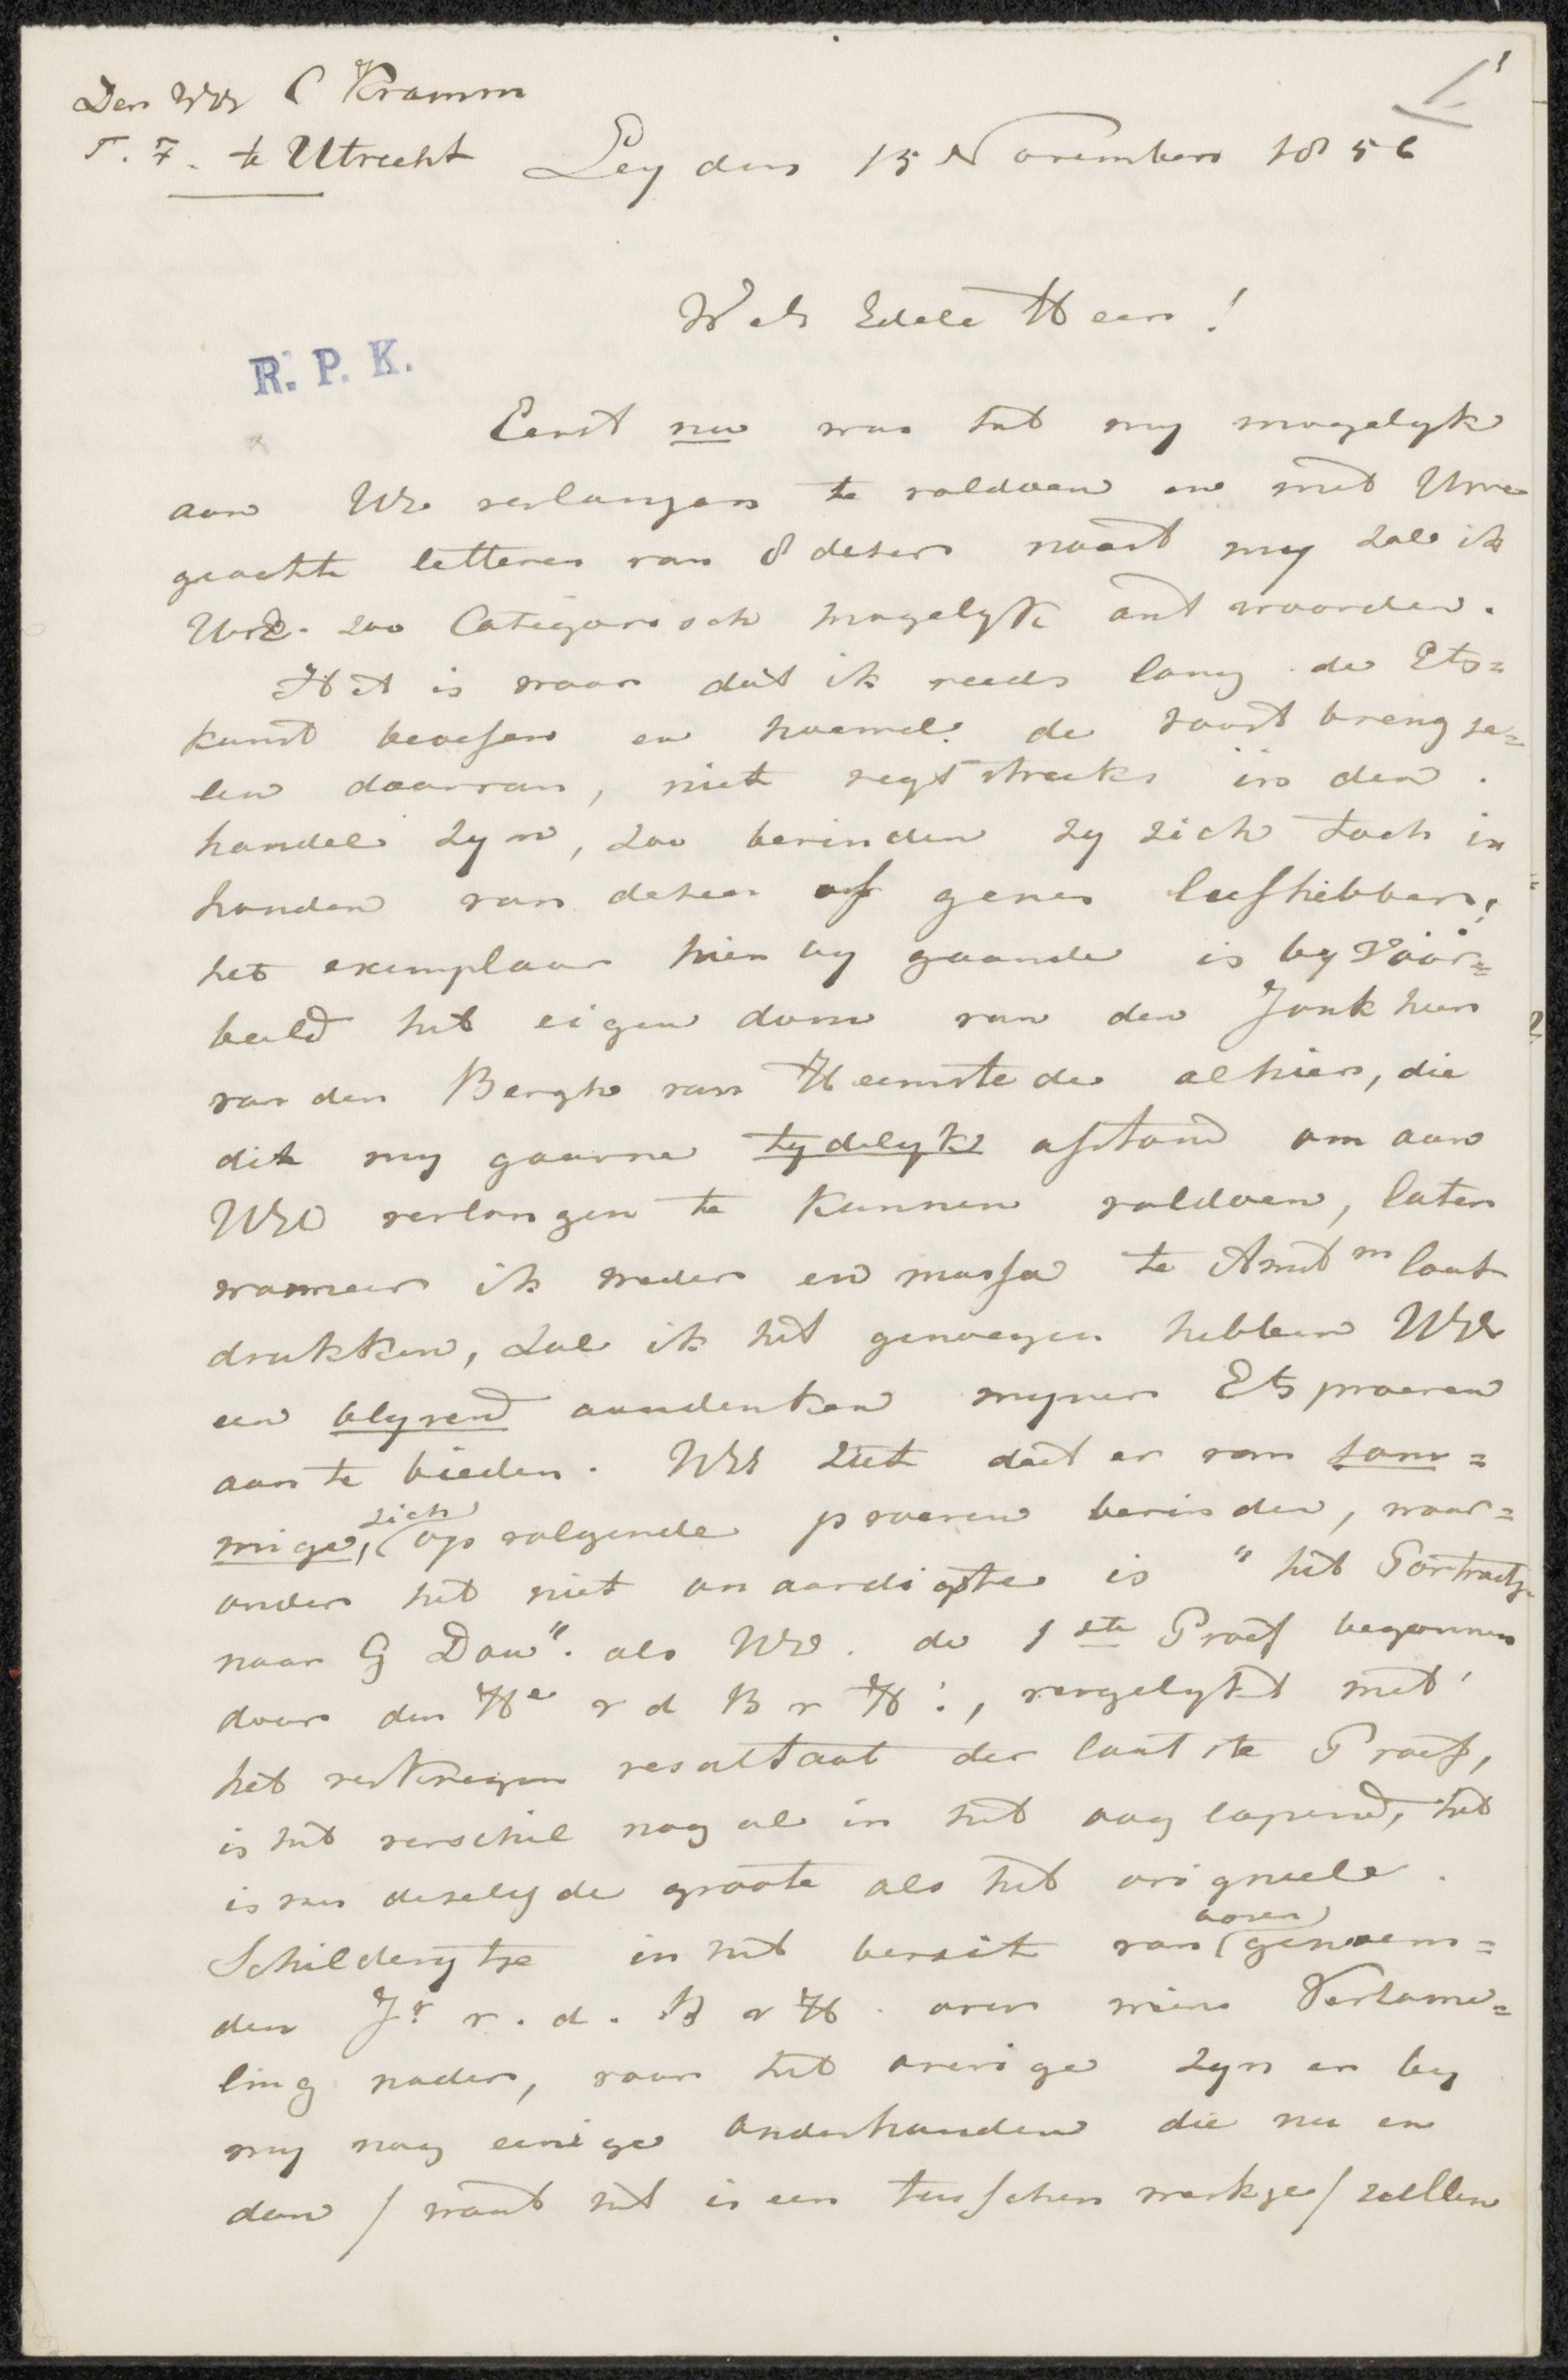 Den WEd C Kramm
T. Z. te Utrecht Leyden 15 November 1856
Wel Edele Heer!
R. P. K.
Eerst nu was het my mogelyk
aan WE verlangen te voldoen en met Uwe
geachte letteren van 8 dezer naast my zal ik
UwE. zoo Categorisch mogelyk antwoorden.
Het is waar dat ik reeds lang de Ets=
kunst beoefen en hoewel de voortbrengse=
len daarvan, niet regtstreeks in den
handel zyn, zoo bevinden zy zich toch in
handen van dezen of genen liefhebber;
het exemplaar hier by gaande is by vóór=
beeld het eigendom van den Jonkheer
van den Bergh van Heemstede alhier, die
dit my gaarne tydelyk afstond om aan
WEd verlangen te kunnen voldoen, later
wanneer ik weder en massa te Amstm laat
drukken, zal ik het genoegen hebben WEd
een blyvend aandenken myner Etsproeven
aan te bieden. WEd ziet dat er van som=
mige, zich opvolgende proeven bevinden, waar=
onder het niet onaardigste is "het Portraitje
naar G Dou". als WEd. de 1ste Proef begonnen
door den He v d B v H:, vergelykt met
het verkregen resultaat der laatste Proef,
is het verschil nog al in het oog lopend, het
is van dezelfde groote als het origineele
Schilderytje in het bezit van bovengenoem=
den Jr v. d. B v H. over mine Verzame=
ling nader, voor het overige zyn er by
my nog eenige onderhanden die nu en
dan / want het is een tusschen werkje / zullen